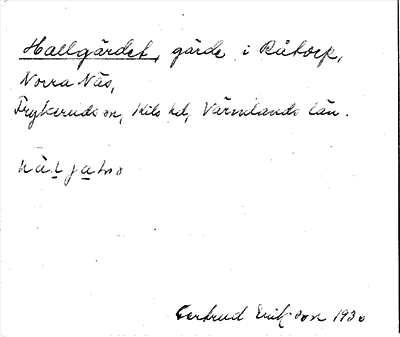 Hallgärdet, gärde i Råtorp,
Norra Näs,
Frykeruds sn, Kils hd, Värmlands län.
Gertrud Erikson 1930